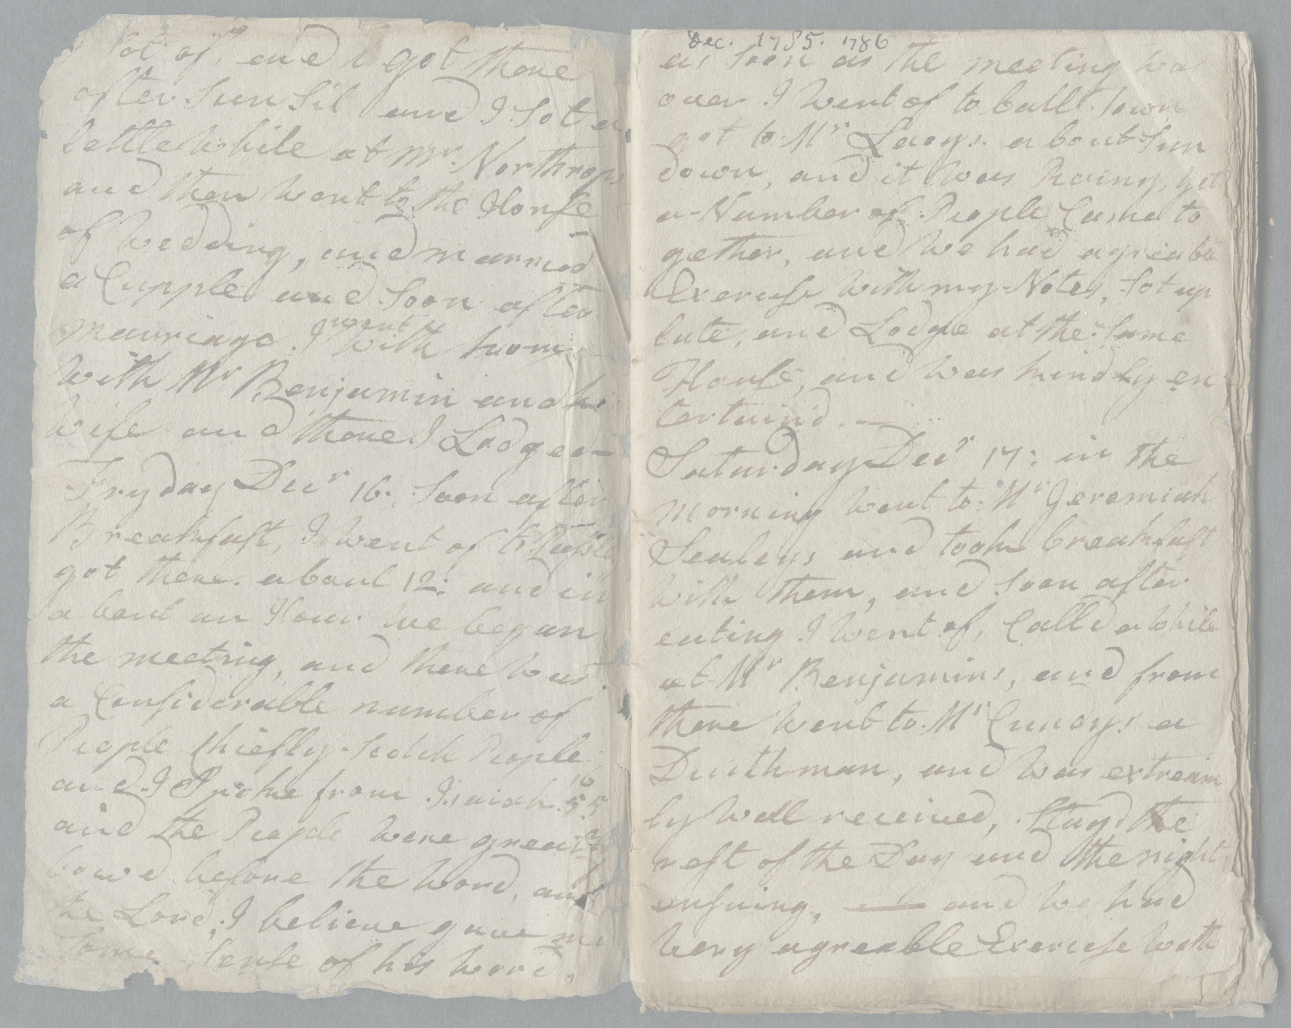 Sot of, and I got there
after Sun Sit and I Sot a
Little While at Mr. Northrop
and then Went to the House
of Wedding, and married
a Cupple and Soon after
marriage. I went With home
With Mr Benjamin and his
Wife and there I Lodged—
Fryday Decr 16: Soon after
Breakfast, I went of to
got there. about 12: and in
a bout an Hour we began
the meeting, and there was
a Considerable number of
People Chiefly Scotch People
and I Spoke from Isaiah 55
10
and the People were greatly
bowd before the Word, and
the Lord, I believe gave me
Some Sense of his word,
Dec. 1785. 1786
as Soon as the meeting was
over I Went of to Ball Town
got to Mr Lacys. a bout Sun
down, and it was Raining yet
a Number of People Came to
gether, and We had agreable
Exercise With my Notes, Sot up
late, and Lodge at the Same
House, and was kindly en
tertaind. —
Saturday Decr 17: in the
Morning went to Mr Jeremiah
Sealeys and took breakfast
with them, and Soon after
eating I Went of, Calld a While
at Mr Benjamins, and from
there Went to Mr Cundys. a
Ducthman, and was extream
ly Well received, Stayd the
rest of the Day and the night
ensuing, — and We had
Very agreable Exercise With